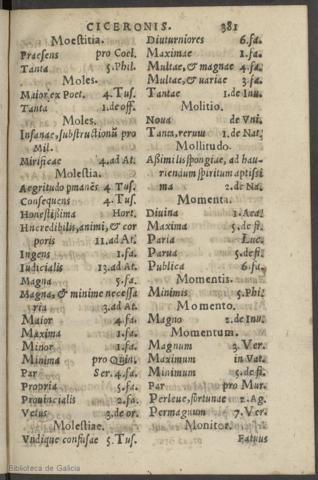 CICERONIS. 381
Moestitia.
Praesens pro Coel.
Tanta 5. Phil.
Moles.
Maior ex Poet. 4. Tus.
Tanta 1. de off.
Moles.
Insanae, substructionũ pro
Mil.
Mirificae 4. ad At.
Molestia.
Aegritudo pmanẽs 4. Tus.
Consequens 4. Tus.
Honestissima Hort.
Hncredibilis, animi, & cor
poris 11. ad At.
Ingens 1. fa.
Iudicialis 13. ad At.
Magna 5. fa.
Magna, & minime necessa
ria 3. ad At.
Maior 4. fa.
Maxima 1. fa.
Minor 1. fa.
Minima pro Quin.
Par Ser. 4. fa.
Propria 5. fa.
Prouincialis 2. fa.
Vetus 3. de or.
Molestiae.
Vndique confusae 5. Tus.
Diuturniores 6. fa.
Maximae 1. fa.
Multae, & magnae 4. fa.
Multae, & uariae 3. fa.
Tantae 1. de Inu.
Molitio.
Noua de Vni.
Tanta, rerum 1. de Nat.
Mollitudo.
Assimilis spongiae, ad hau
riendum spiritum aptissi
ma 2. de Na.
Momenta.
Diuina 1. Aca.
Maxima 5. de fi.
Paria Luc.
Parua 5. de fi.
Publica 6. fa.
Momentis.
Minimis 5. Phil.
Momento.
Magno 2. de Inu.
Momentum.
Magnum 3. Ver.
Maximum in Vat.
Minimum 5. de fi.
Par pro Mur.
Perleue, fortunae 2. Ag.
Permagnum 7. Ver.
Monitor.
Fatuus
Biblioteca de Galicia